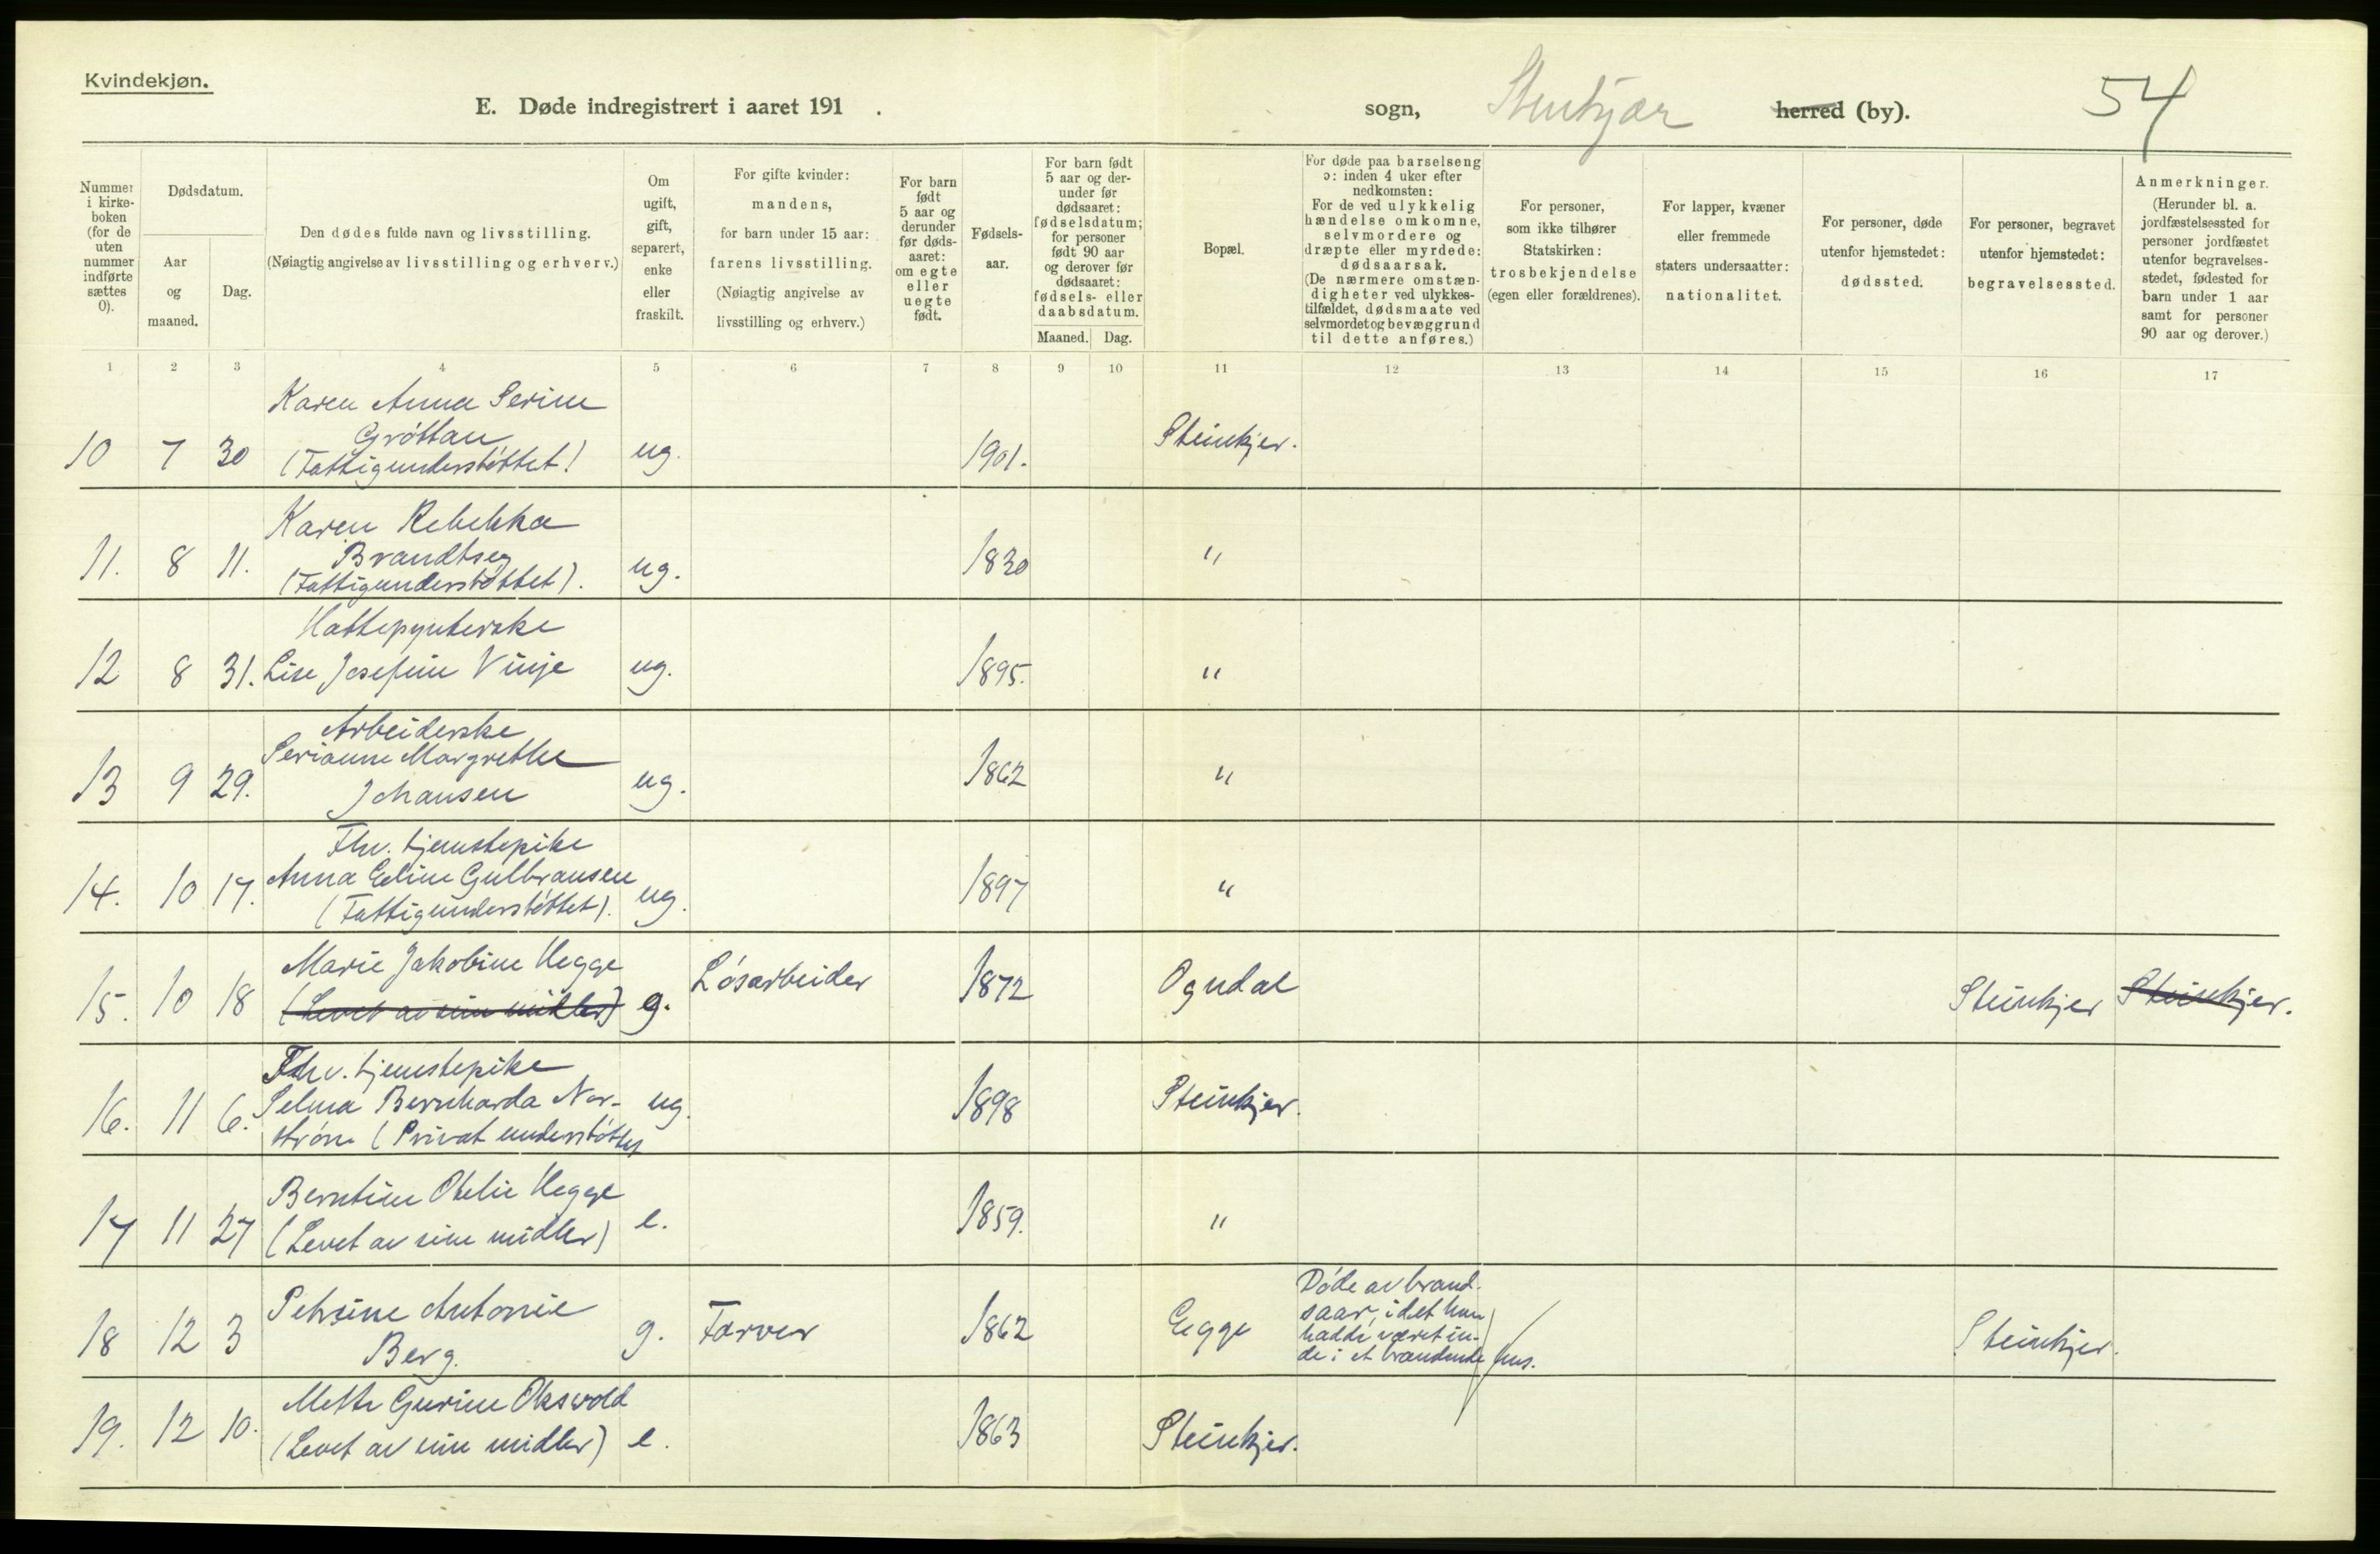 Kvindekjøn.
E. Døde indregistrert i aaret 191 .
sogn, Stenkjær herred (by).
54
Nummer i kirke-boken (for de uten nummer indførte sættes 0).
Dødsdatum.
Aar og maaned.
Dag.
Den dødes fulde navn og livsstilling.
(Nøiagtig angivelse av livsstilling og erhverv.)
Om ugift, gift, separert, enke eller fraskilt.
For gifte kvinder: mandens, for barn under 15 aar: farens livsstilling. (Nøiagtig angivelse av livsstilling og erhverv.)
For barn født 5 aar og derunder før døds-aaret: om egte eller uegte født.
Fødsels-aar.
For barn født 5 aar og der-under før dødsaaret: fødselsdatum; for personer født 90 aar og derover før dødsaaret: fødsels- eller daabsdatum.
Maaned. Dag.
Bopæl.
For døde paa barselseng ɔ: inden 4 uker efter nedkomsten: For de ved ulykkelig hændelse omkomne, selvmordere og dræpte eller myrdede: dødsaarsak. (De nærmere omstæn-digheter ved ulykkes-tilfældet, dødsmaate ved selvmordet og bevæggrund til dette anføres.)
For personer, som ikke tilhører Statskirken: trosbekjendelse (egen eller forældrenes).
For lapper, kvæner eller fremmede staters undersaatter: nationalitet.
For personer, døde utenfor hjemstedet: dødssted.
For personer, begravet utenfor hjemstedet: begravelsessted.
Anmerkninger. (Herunder bl. a. jordfæstelsessted for personer jordfæstet utenfor begravelses-stedet, fødested for barn under 1 aar samt for personer 90 aar og derover.)
1 2 3 4 5 6 7 8 9 10 11 12 13 14 15 16 17
Karen Anna Serine
Gröttan
10 7 30 (Fattigunderstöttet) ug. 1901. Steinkjer.
Karen Rebekka
Brandtseg
11. 8 11. (Fattigunderstöttet). ug. 1830 "
Hattepynterske
12 8 31. Lise Josefine Vinje ug. 1895. "
Arbeiderske
Serianne Margrethe
13 9 29. Johansen ug. 1862 "
Fhv. tjenstepike
Anna Eline Gulbransen
14. 10 17. (Fattigunderstöttet). ug. 1897 "
Marie Jakobine Hegge Lösarbeider
15. 10 18 (Levet av sine midler) g. 1872 Ogndal Steinkjer Steinkjer.
Fhv. tjenstepike
Selma Bernharda Nor-
16. 11 6. ström (Privat understöttet ug. 1898 Steinkjer.
Berntine Otelie Hegge
17 11 27 (Levet av sine midler) e. 1859. "
Petrine Antonie
18 12 3 Berg. g. Farver 1862 Egge Steinkjer.
Döde av brand-
saar, idet hun
hadde været in-
de i et brændende hus.
Mette Gurine Okswold
19. 12 10. (Levet av sine midler) e. 1863 Steinkjer.